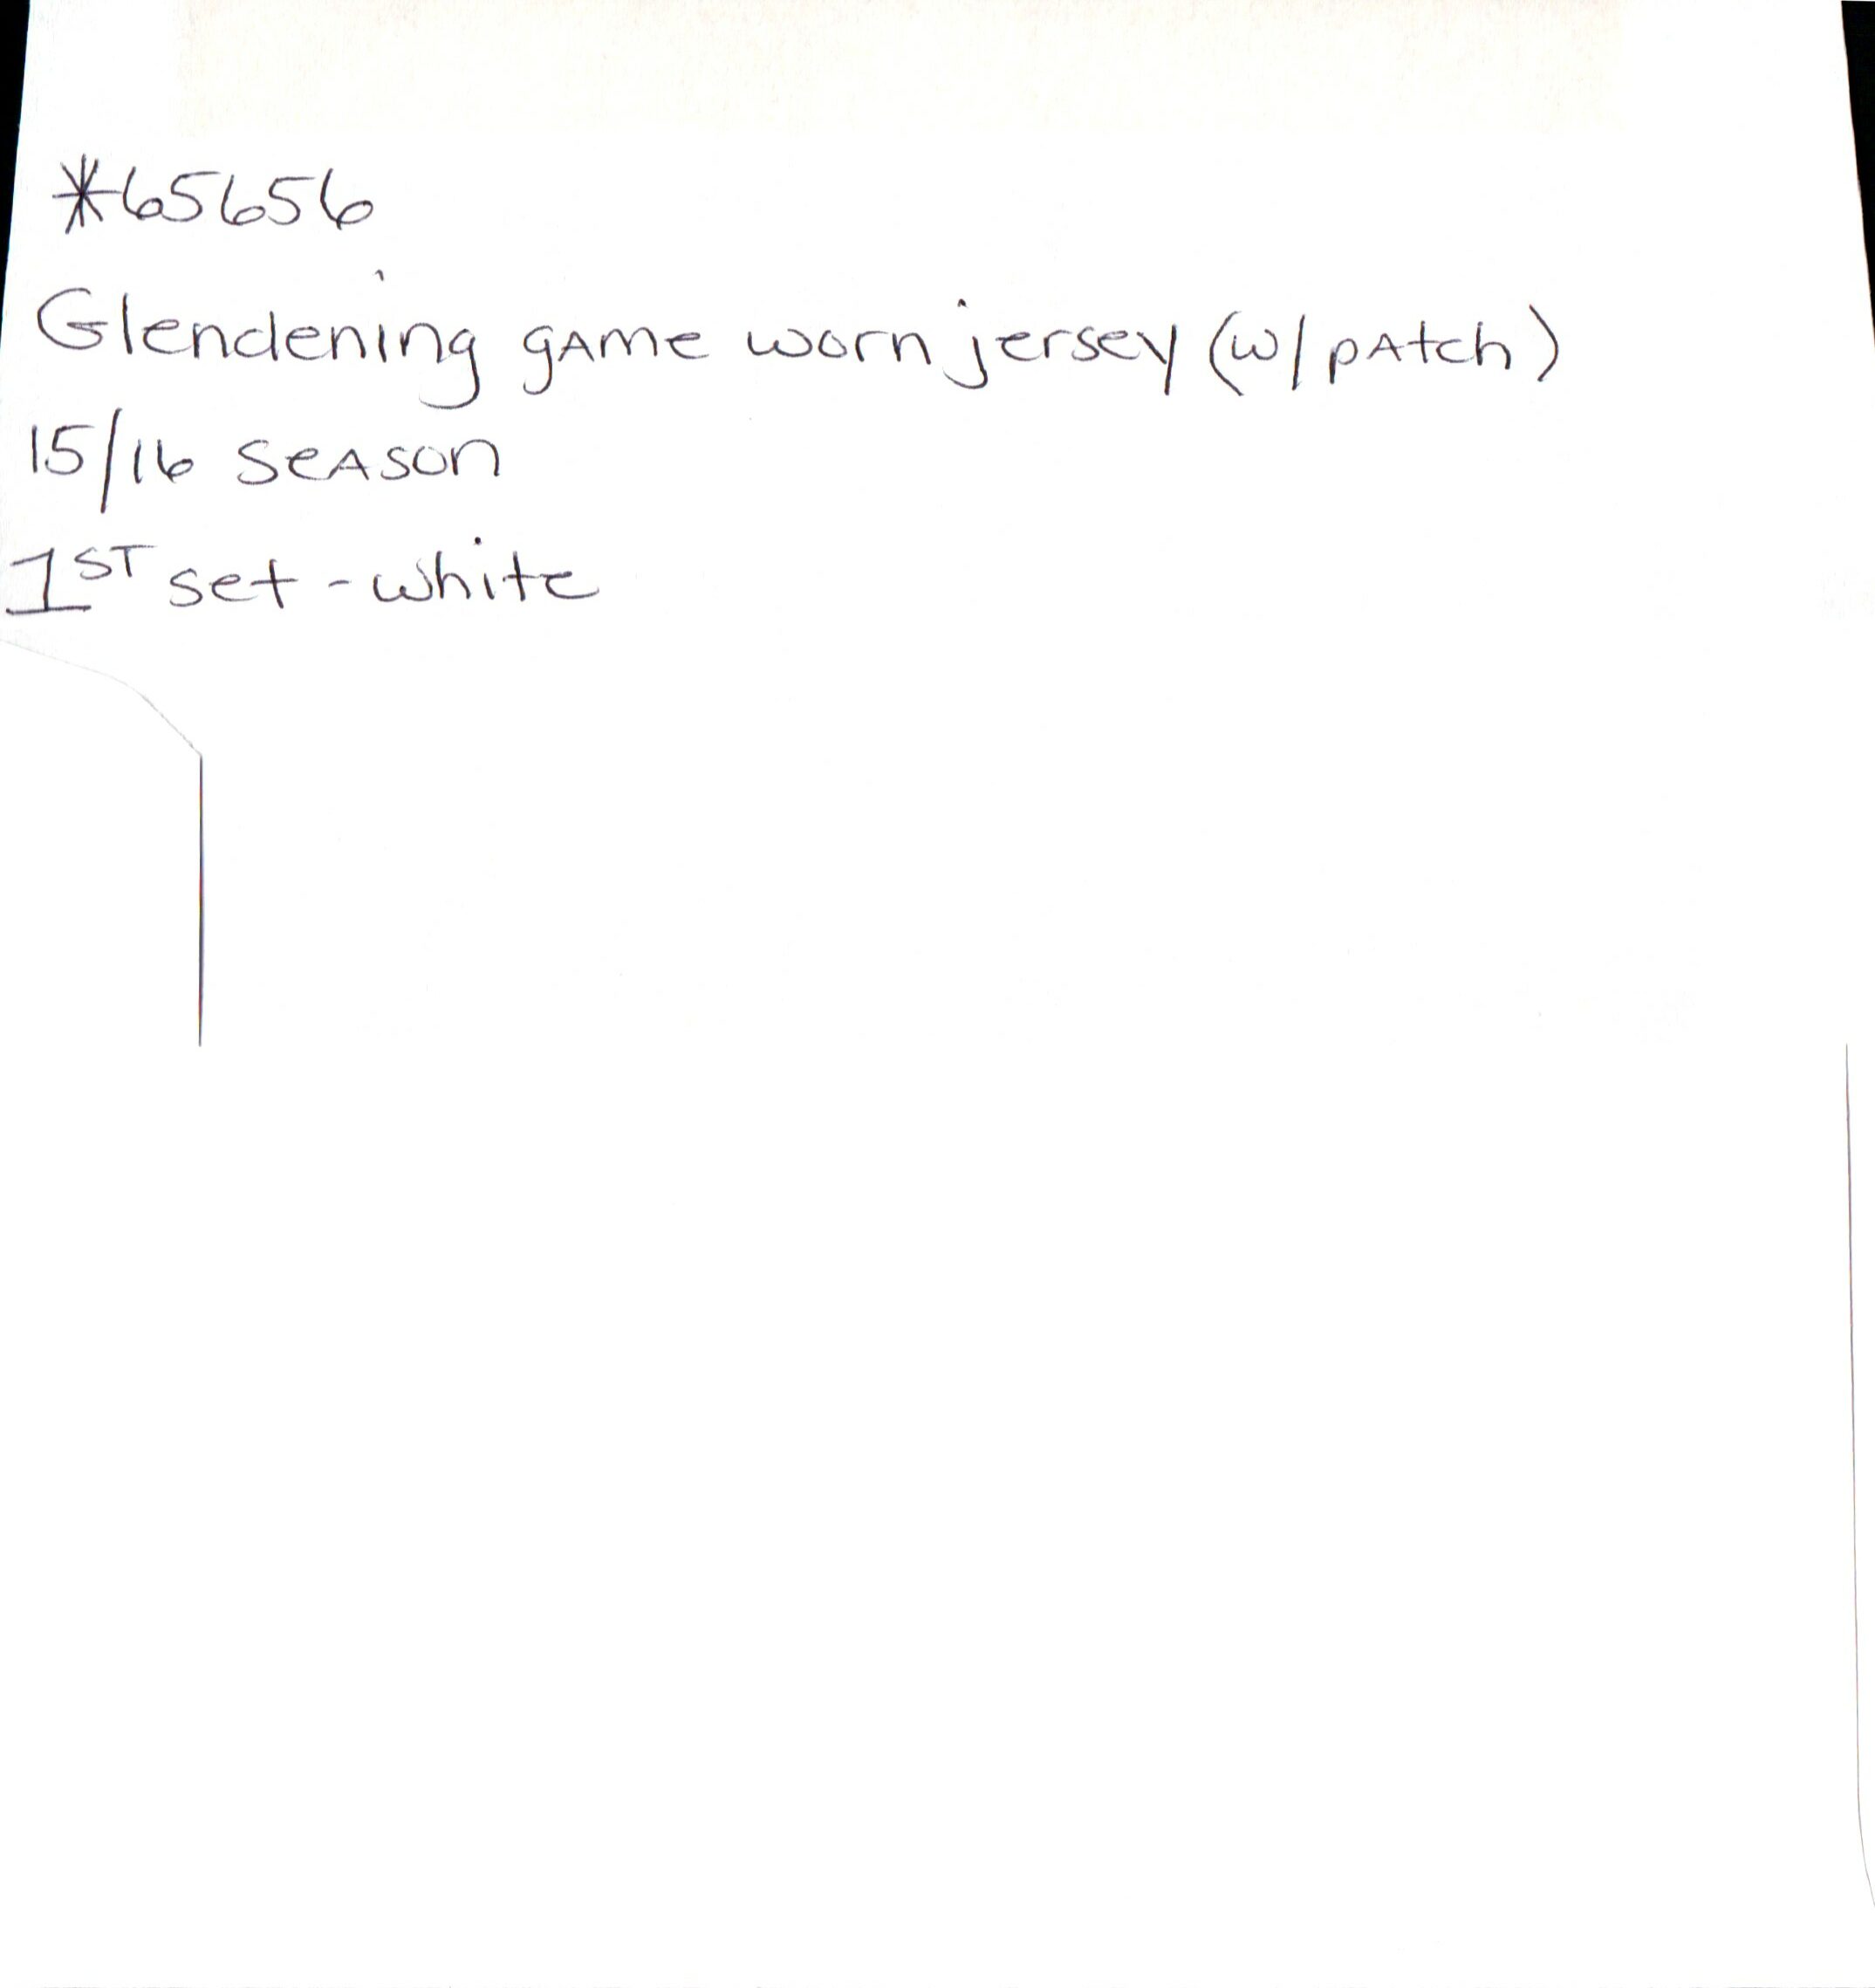 *65656
Glendening game worn jersey (w/patch)
15/16 season
1ST set - white